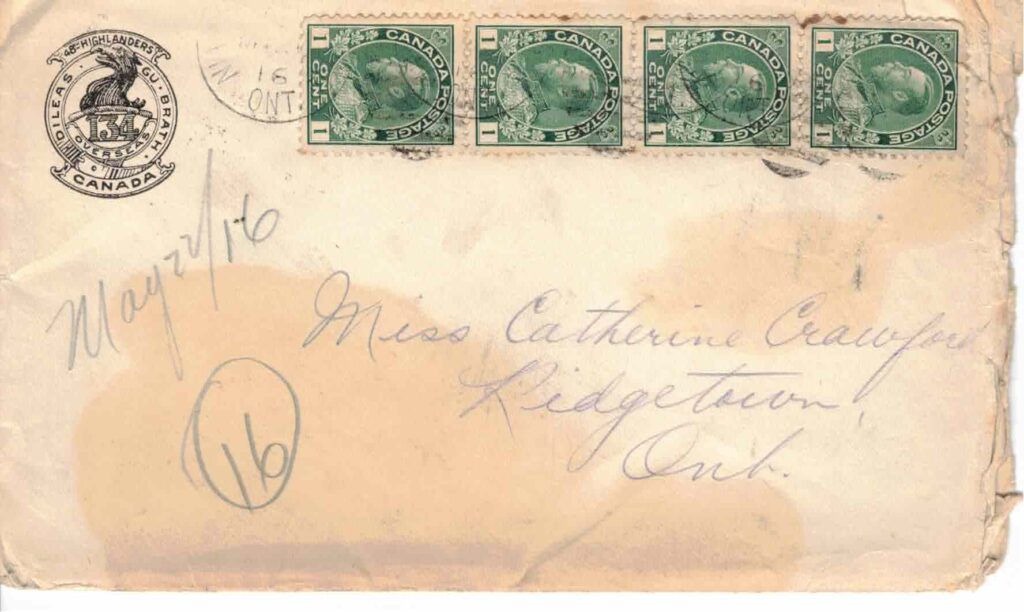 48TH HIGHLANDERS
DILEAS · GU · BRATH
134
OVERSEAS
CANADA
16
ONT
1 CANADA POSTAGE ONE CENT 1
1 CANADA POSTAGE ONE CENT 1
1 CANADA POSTAGE ONE CENT 1
1 CANADA POSTAGE ONE CENT 1
May 22/16
Miss Catherine Crawford
Ridgetown,
Ont.
16